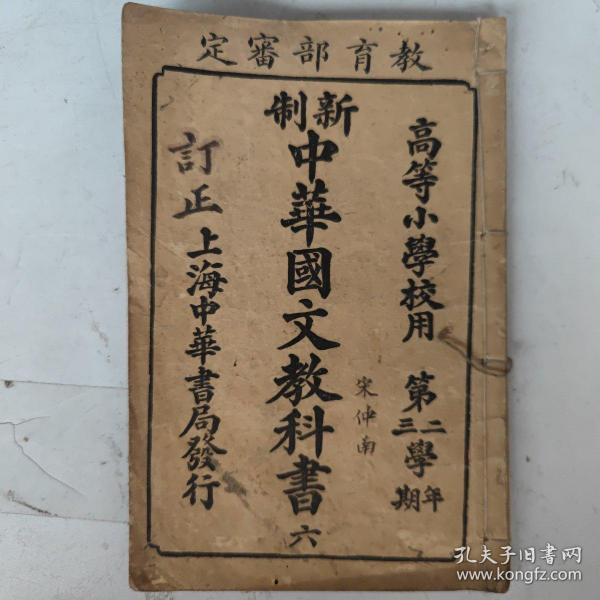 教育部審定
高等小學校用
第二學年
三學期
新制
中華國文教科書 六
宋仲南
訂正 上海中華書局發行
孔夫子旧書网
www.kongfz.com